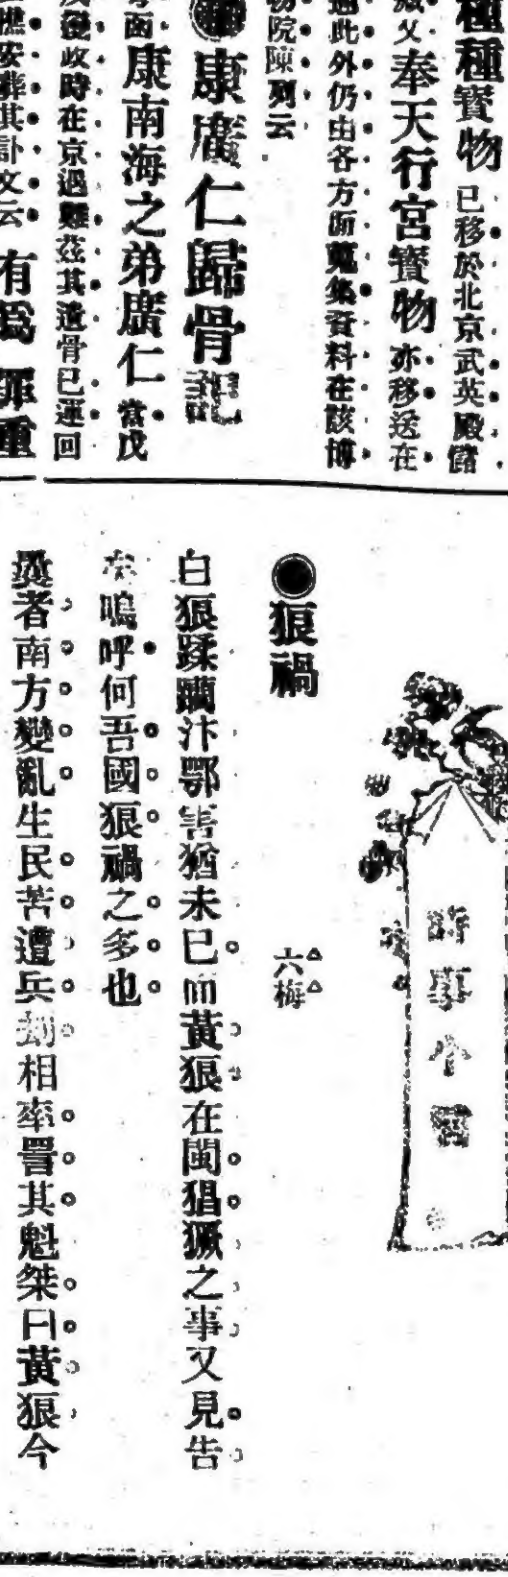 種種寶物 已移於北京武英殿儲
藏又奉天行宮寶物 亦移送在
過此外仍由各方面蒐集資料在該博
物院陳列云
康廣仁歸骨記
函康南海之弟廣仁 當戊
戌變政時在京遇難茲其遺骨已運回
安葬其訃文云 有爲 罪重
時事小言
●狼禍
六梅
白狼蹂躪汴鄂害猶未已而黃狼在閩猖獗之事又見告
矣嗚呼何吾國狼禍之多也
曩者南方變亂生民苦遭兵劫相率詈其魁桀曰黃狼今